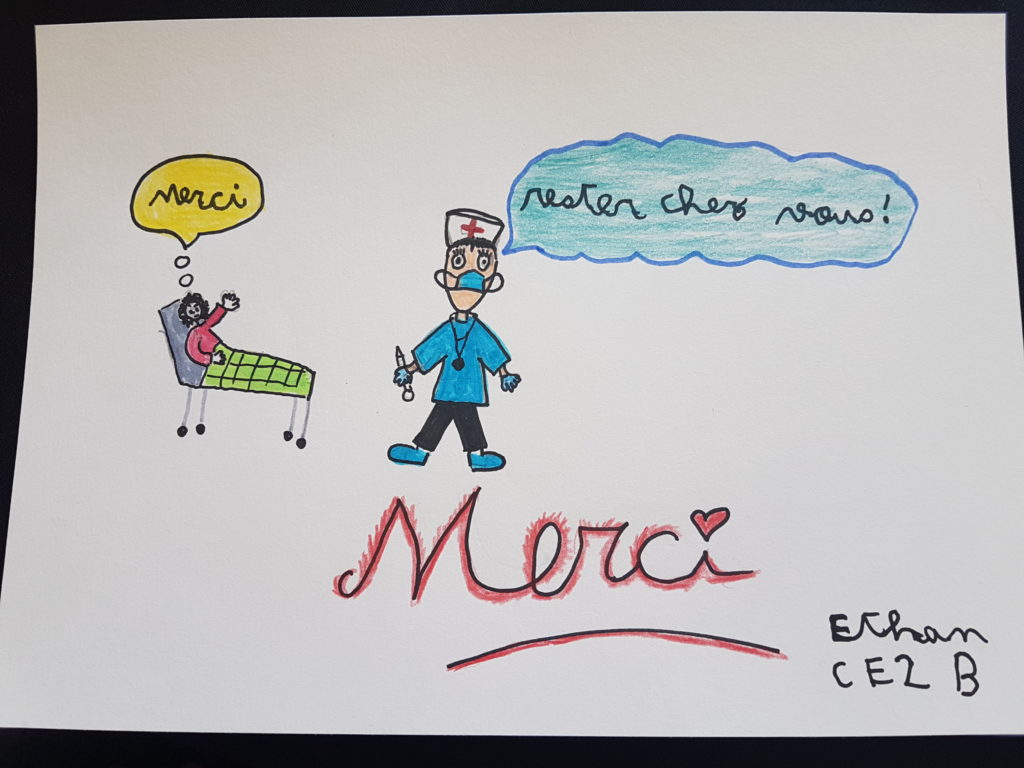 Merci
rester chez vous!
Merci
Ethan
CE2 B